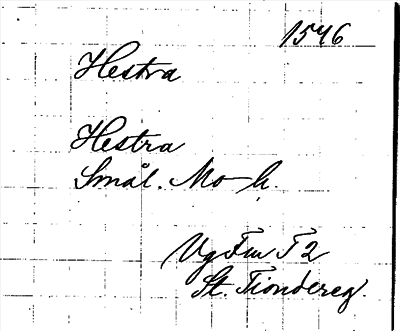 1546
Hestra
Hestra
Smål. Mo h.
Vg Fm T 2
St. Tiondereg.